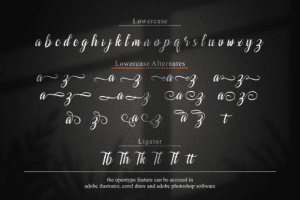 Lowercase
a b c d e f g h i j k l m n o p q r s t u v w x y z
Lowercase Alternates
a z a z a z a z
a z a z a z a z
a z a z t
Ligatur
Th Th tk tl tf tt
the opentype feature can be accesed in
adobe ilustrator, corel draw and adobe photoshop software